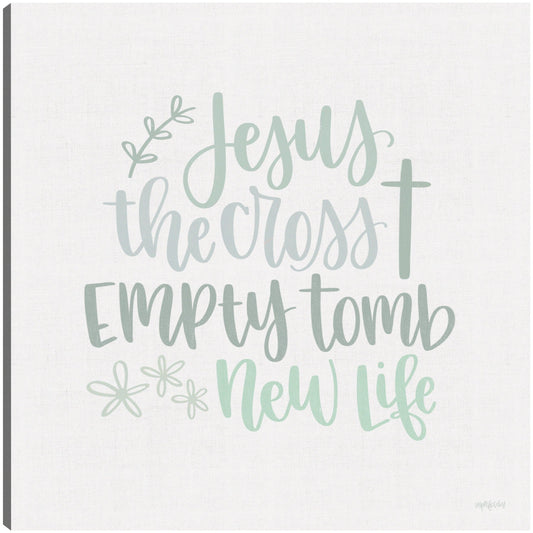 Jesus
the cross
Empty tomb
New Life